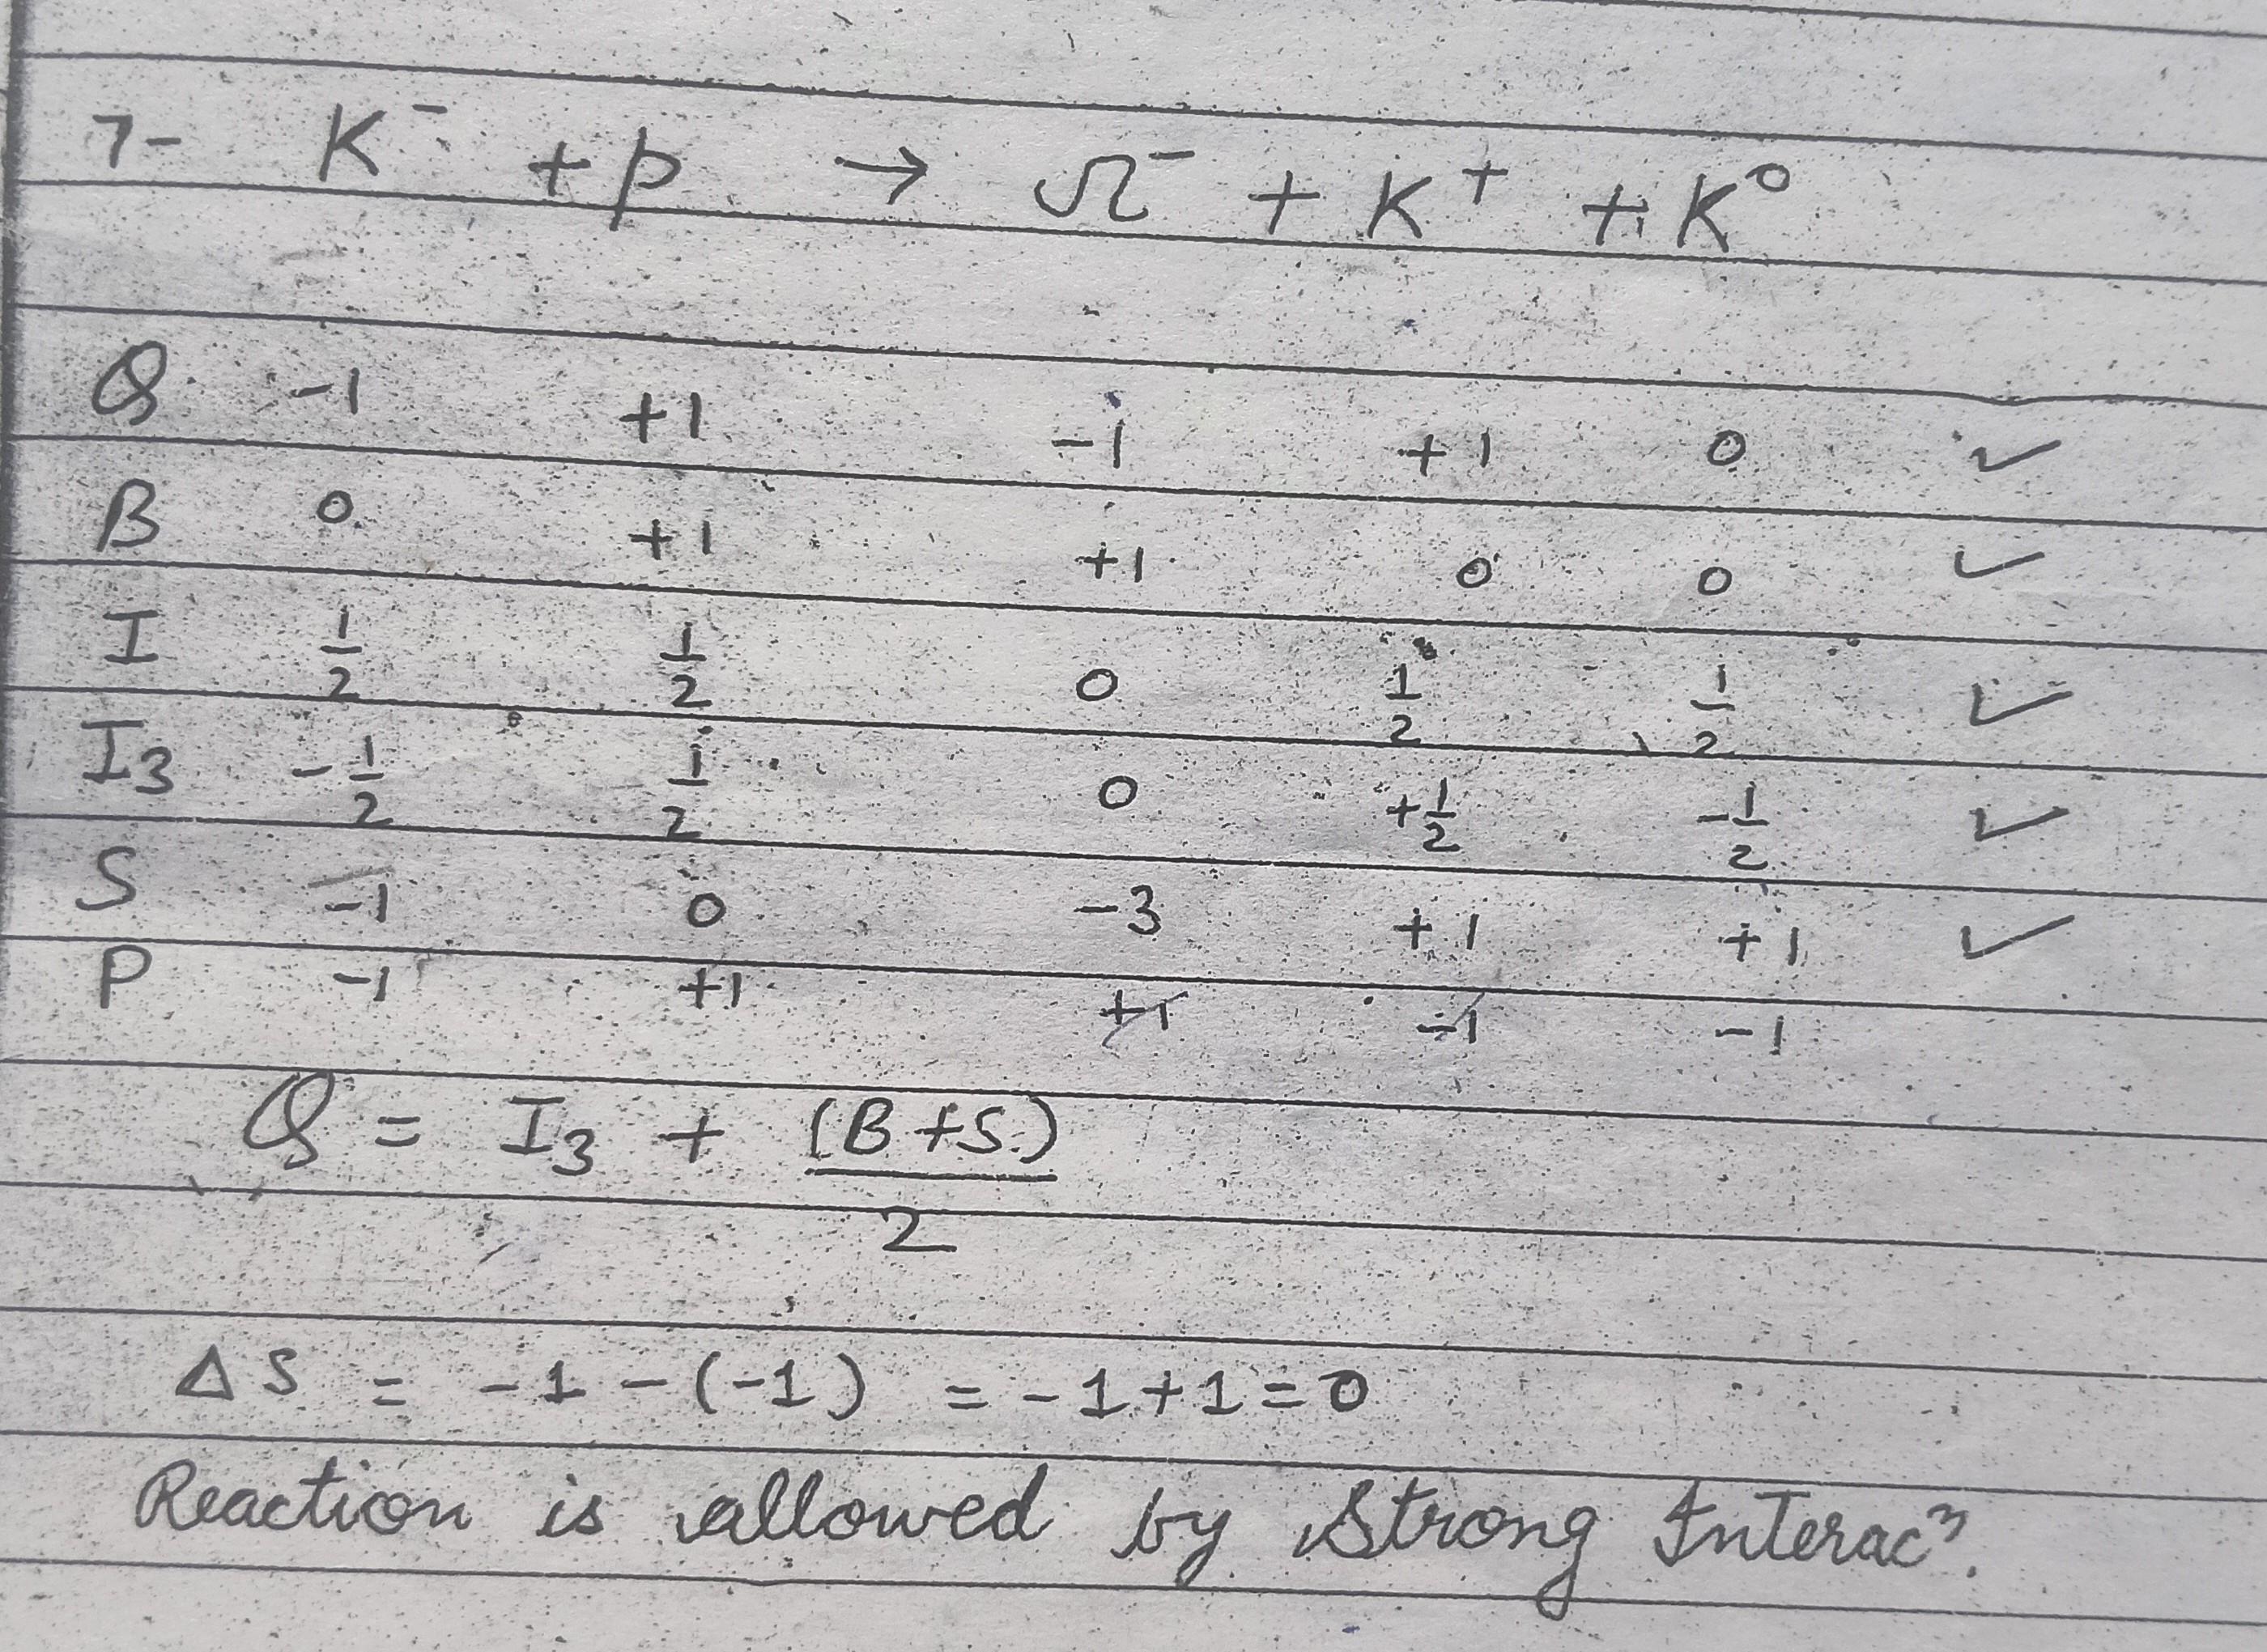 7- K⁻ + p → Ω⁻ + K⁺ + K⁰
Q -1 +1 -1 +1 0 ✓
B 0 +1 +1 0 0 ✓
I 1/2 1/2 0 1/2 1/2 ✓
I₃ -1/2 1/2 0 +1/2 -1/2 ✓
S -1 0 -3 +1 +1 ✓
P -1 +1 +1 -1 -1
Q = I₃ + (B+S)/2
ΔS = -1-(-1) = -1+1=0
Reaction is allowed by Strong Interacⁿ.